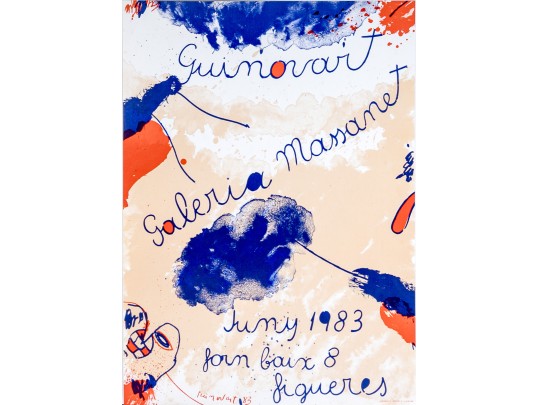 Guinovart
Galeria Massanet
Juny 1983
forn baix 8
figueres
Guinovart 83